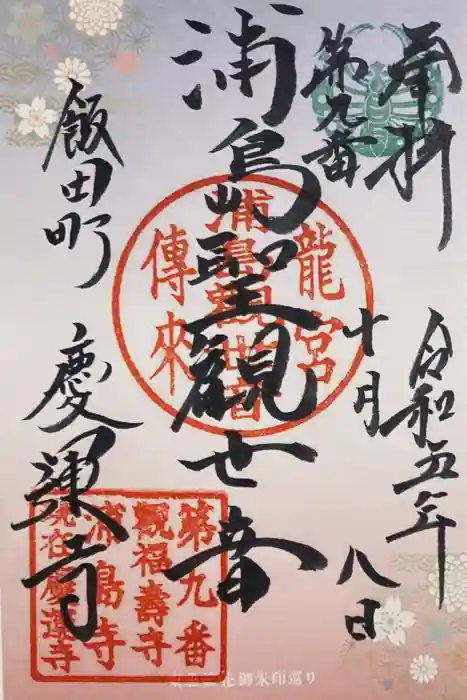 奉拝
令和五年
十月
八日
第九番
浦島聖観世音
飯田町
慶運寺
龍宮
浦島観世音
傳來
第九番
観福壽寺
浦島寺
現在慶運寺
御朱印巡り